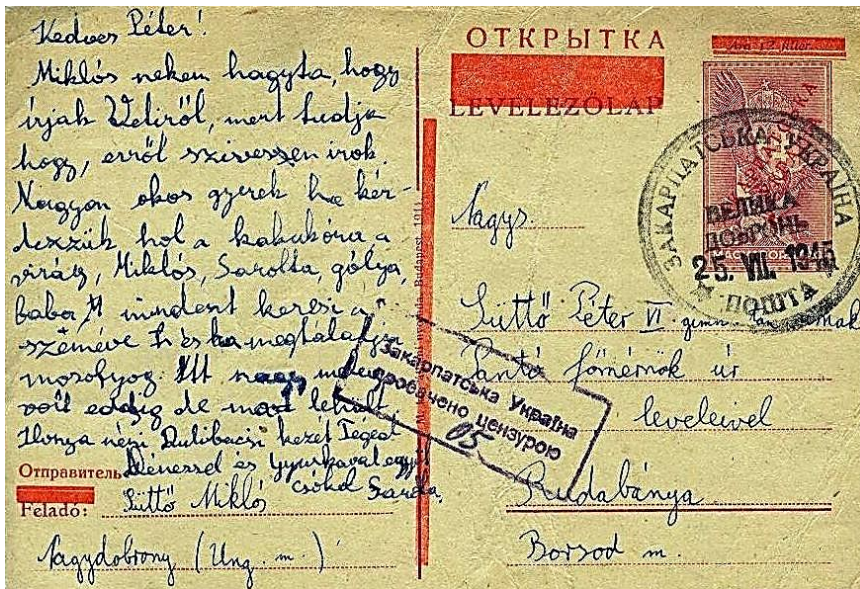 Kedves Péter!
Miklós nekem hagyta, hogy
írjak Vetiről, mert tudja
hogy, erről szivessen irok.
Nagyon okos gyerek ha kér-
dezzük hol a kakukóra a
virág, Miklós, Sarolta, gólya,
Baba, mindent keresi a
szeméve l és ha megtalálja
mosolyog. Itt nagy meleg
volt eddig de mar lehült.
Ilonya néni, bácsi kezét Téged
Dénessel és Gyurkával együtt
csókol Sarolta.
Отправитель
Feladó: Süttő Miklós
Nagydobrony (Ung. m.)
Budapest, 1941
ОТКРЫТКА
LEVELEZŐLAP
Ára 12 fillér
ЗАКАРПАТСЬКА УКРАЇНА
ВЕЛИКА
ДОБРОНЬ
25. VII. 1945
ПОШТА
Закарпатська Україна
пробачено цензурою
05
Nagys.
Süttő Péter VI gimn.
Pantó főmérnök úr
leveleivel
Rudabánya
Borsod m.